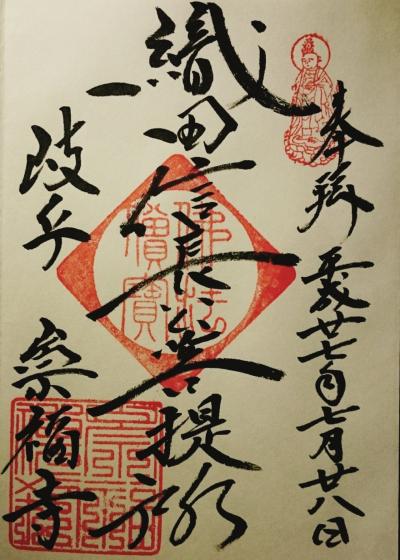 奉拝 平成廿七年七月廿八日
織田信長公菩提所
岐阜 崇福寺
佛法
僧寶